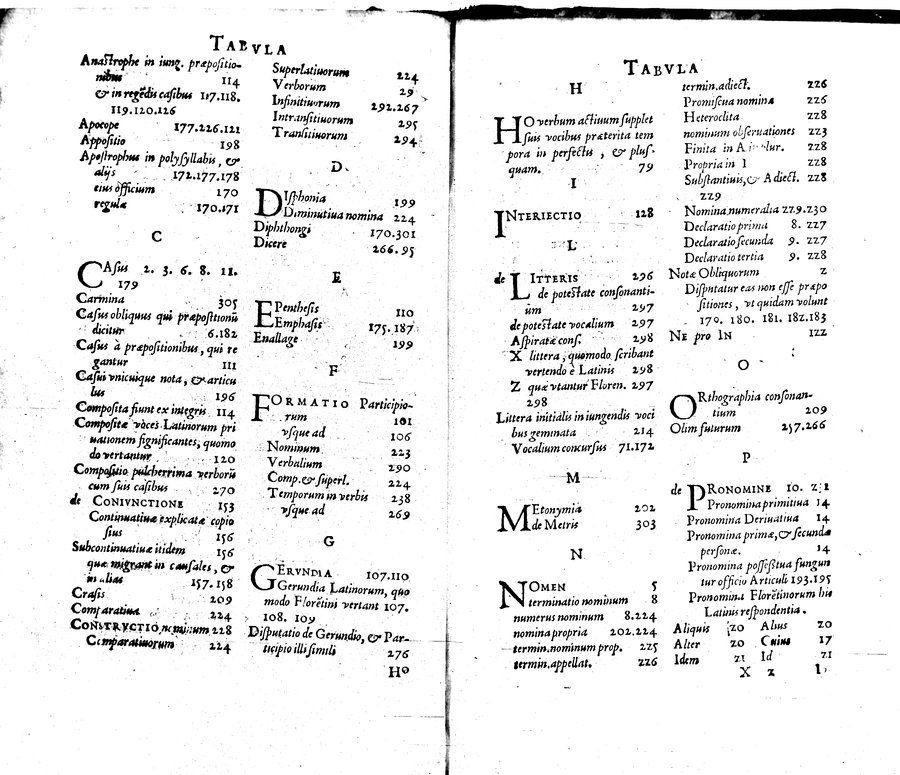 TABVLA
Anastrophe in iung. præpositio-
nibus 114
& in regẽdis casibus 117.118.
119.120.126
Apocope 177.226.121
Appositio 198
Apostrophus in polysyllabis, &
alijs 172.177.178
eius officium 170
regulæ 170.171
C
CAsus 2. 3. 6. 8. 11.
179
Carmina 305
Casus obliquus qui præpositionũ
dicitur 6.182
Casus à præpositionibus, qui re
gantur 111
Casui vnicuique nota, & articu
lus 196
Composita fiunt ex integris 114
Compositæ voces Latinorum pri
uationem significantes, quomo
do vertantur 120
Compositio pulcherrima verborũ
cum suis casibus 270
de CONIVNCTIONE 153
Continuatiuæ explicatæ copio
sius 156
Subcontinuatiuæ itidem 156
quæ migrant in causales, &
in alias 157.158
Crasis 209
Comparatiua 224
CONSTRVCTIO nominum 228
Comparatiuorum 224
Superlatiuorum 224
Verborum 29
Infinitiuorum 292.267
Intransitiuorum 295
Transitiuorum 294
D
DIsphonia 199
Diminutiua nomina 224
Diphthongi 170.301
Dicere 266.95
E
EPenthesis 110
Emphasis 175.187
Enallage 199
F
FORMATIO Participio-
rum 101
vsque ad 106
Nominum 223
Verbalium 290
Comp. & superl. 224
Temporum in verbis 238
vsque ad 269
G
GERVNDIA 107.110
Gerundia Latinorum, quo
modo Florẽtini vertant 107.
108. 109
Disputatio de Gerundio, & Par-
ticipio illi simili 276
Ho
TABVLA
H
HO verbum actiuum supplet
suis vocibus præterita tem
pora in perfectis, & plus-
quam. 79
I
INTERIECTIO 128
L
de LITTERIS 296
de potestate consonanti-
um 297
de potestate vocalium 297
Aspiratæ cons. 298
X littera, quomodo scribant
vertendo è Latinis 298
Z quæ vtantur Floren. 297
298
Littera initialis in iungendis voci
bus geminata 214
Vocalium concursus 71.172
M
MEtonymia 202
de Metris 303
N
NOmen 5
terminatio nominum 8
numerus nominum 8.224
nomina propria 202.224
termin. nominum prop. 225
termin. appellat. 226
termin. adiect. 226
Promiscua nomina 226
Heteroclita 228
nominum obseruationes 223
Finita in A 228
Propria in I 228
Substantiuis, & Adiect. 228
229
Nomina numeralia 229.230
Declaratio prima 8. 227
Declaratio secunda 9. 227
Declaratio tertia 9. 228
Notæ Obliquorum 2
Disputatur eas non esse præpo
sitiones, vt quidam volunt
179. 180. 181. 182.183
NE pro IN 122
O
ORthographia consonan-
tium 209
Olim futurum 257.266
P
de PRONOMINE 10.
Pronomina primitiua 14
Pronomina Deriuatiua 14
Pronomina primæ, & secundæ
personæ. 14
Pronomina possessiua fungun
tur officio Articuli 193.195
Pronomina Florẽtinorum his
Latinis respondentia.
Aliquis 20 Alius 20
Alter 20 Cuius 17
Idem 21 Id 21
X 2